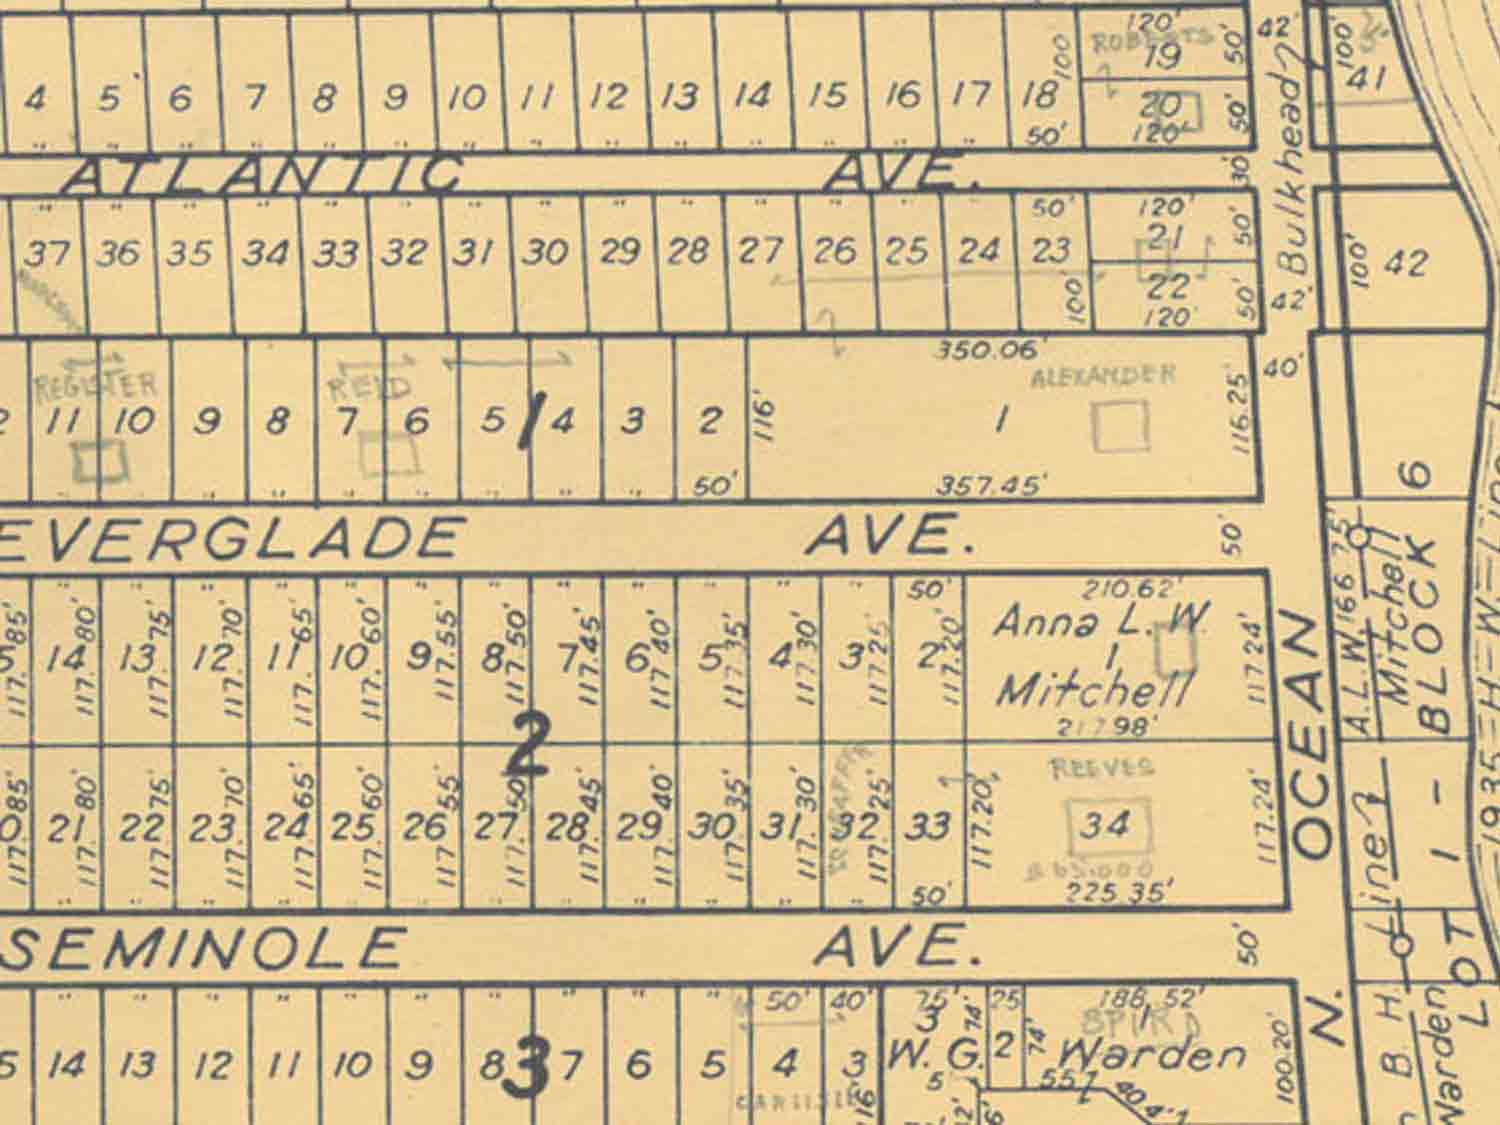 120'
42'
ROBERTS
4 5 6 7 8 9 10 11 12 13 14 15 16 17 18 100 19 50' 100' 41
50' 20 50'
120'
ATLANTIC AVE. 30' Bulkhead
50' 120'
37 36 35 34 33 32 31 30 29 28 27 26 25 24 23 21 50' 100' 42
100' 22 50' 42'
120'
350.06' 40'
REGISTER REID ALEXANDER
11 10 9 8 7 6 5 1 4 3 2 116' 1 116.25' 6
50' 357.45'
EVERGLADE AVE. 50'
50' 210.62'
117.85' 117.80' 117.75' 117.70' 117.65' 117.60' 117.55' 117.50' 117.45' 117.40' 117.35' 117.30' 117.25' 117.20' Anna L. W. 117.24'
14 13 12 11 10 9 8 7 6 5 4 3 2 1
Mitchell
217.98'
2
A.L.W. Mitchell 166.75'
BLOCK
OCEAN
REEVES
117.85' 117.80' 117.75' 117.70' 117.65' 117.60' 117.55' 117.50' 117.45' 117.40' 117.35' 117.30' 117.25' 117.20' 117.24'
21 22 23 24 25 26 27 28 29 30 31 32 33 34
65,000
50' 225.35'
1935-H-W-Line
Line
1 -
SEMINOLE AVE. 50'
LOT
50' 40' 75' 25 188.52'
3 74' 1
14 13 12 11 10 9 8 3 7 6 5 4 3 W. G. 2 74' Warden 100.20' N.
5 55' 40
CARLISLE
B. H.
Warden